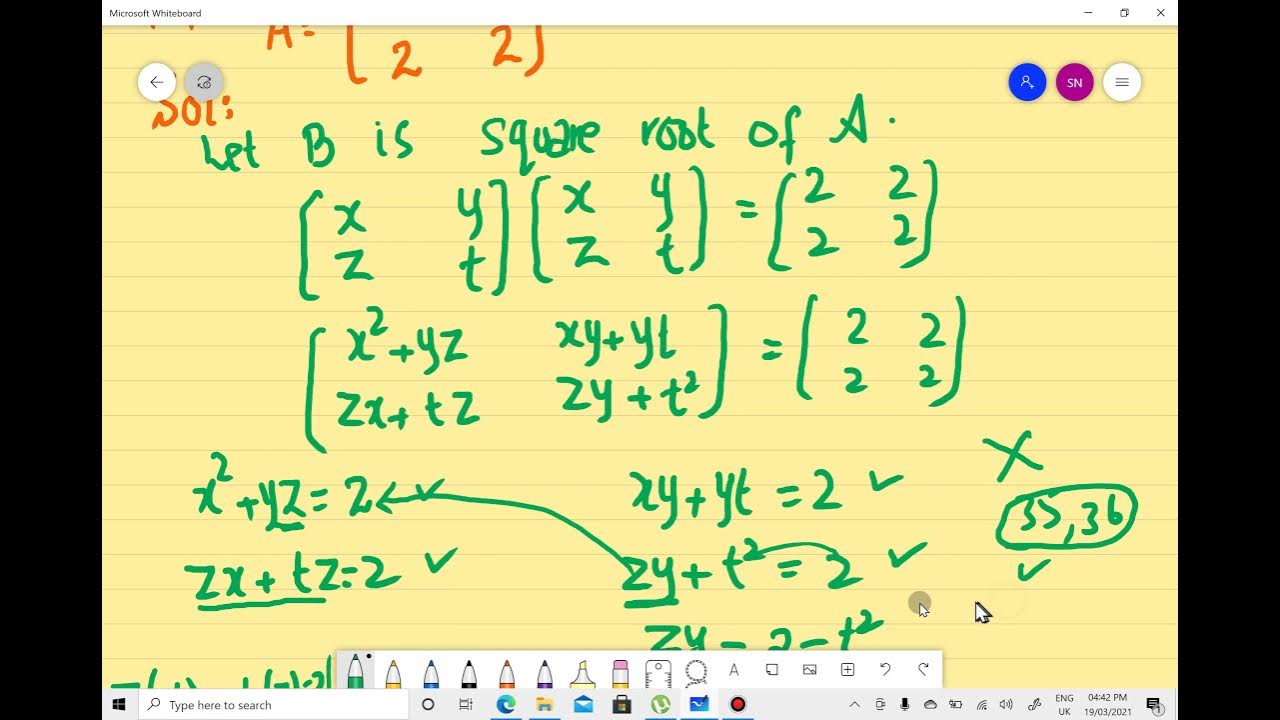 Microsoft Whiteboard
A=
2 2
SN
Sol:
Let B is square root of A.
[x y] [x y] = [2 2]
[z t] [z t] [2 2]
[x²+yz xy+yt] = [2 2]
[zx+tz zy+t²] [2 2]
x²+yz=2 ✓ xy+yt=2 ✓
35,36 ✓
zx+tz=2 ✓ zy+t²=2 ✓
zy=2-t²
Type here to search
ENG
UK
04:42 PM
19/03/2021